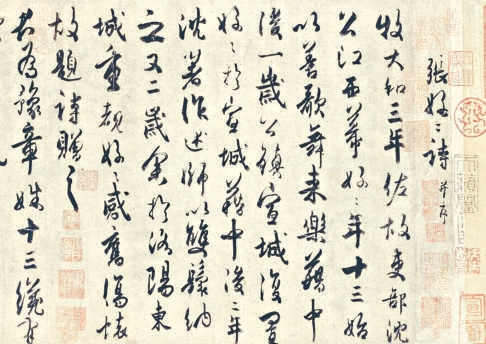 張好〻詩并序
牧大和三年佐故吏部沈
公江西幕好〻年十三始
以善歌舞来樂籍中
後一歲公鎮宣城復置
好〻於宣城籍中後二年
沈著作述師以雙鬟納
之又二歲余於洛陽東
城重覩好〻感舊傷懷
故題詩贈之
君為豫章姝十三纔有